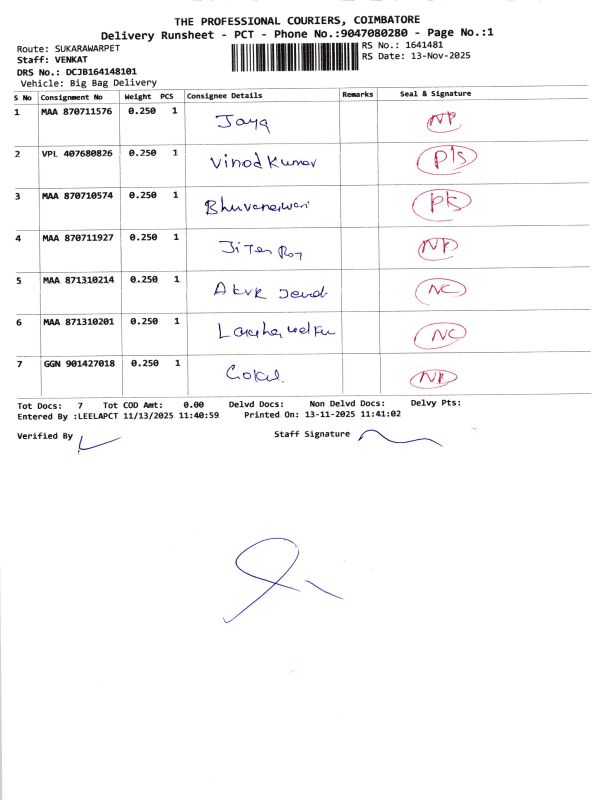 THE PROFESSIONAL COURIERS, COIMBATORE
Delivery Runsheet - PCT - Phone No.:9047080280 - Page No.:1
Route: SUKARAWARPET
RS No.: 1641481
Staff: VENKAT
RS Date: 13-Nov-2025
DRS No.: DCJB164148101
Vehicle: Big Bag Delivery
S No Consignment No Weight PCS Consignee Details Remarks Seal & Signature
1 MAA 870711576 0.250 1 Jaya NP
2 VPL 407680826 0.250 1 Vinod Kumar P's
3 MAA 870710574 0.250 1 Bhuvaneswari
4 MAA 870711927 0.250 1 Ji Ten Roy NP
5 MAA 871310214 0.250 1 NC
6 MAA 871310201 0.250 1 NC
7 GGN 901427018 0.250 1 Gokul. NP
Tot Docs: 7 Tot COD Amt: 0.00 Delvd Docs: Non Delvd Docs: Delvy Pts:
Entered By :LEELAPCT 11/13/2025 11:40:59 Printed On: 13-11-2025 11:41:02
Verified By Staff Signature